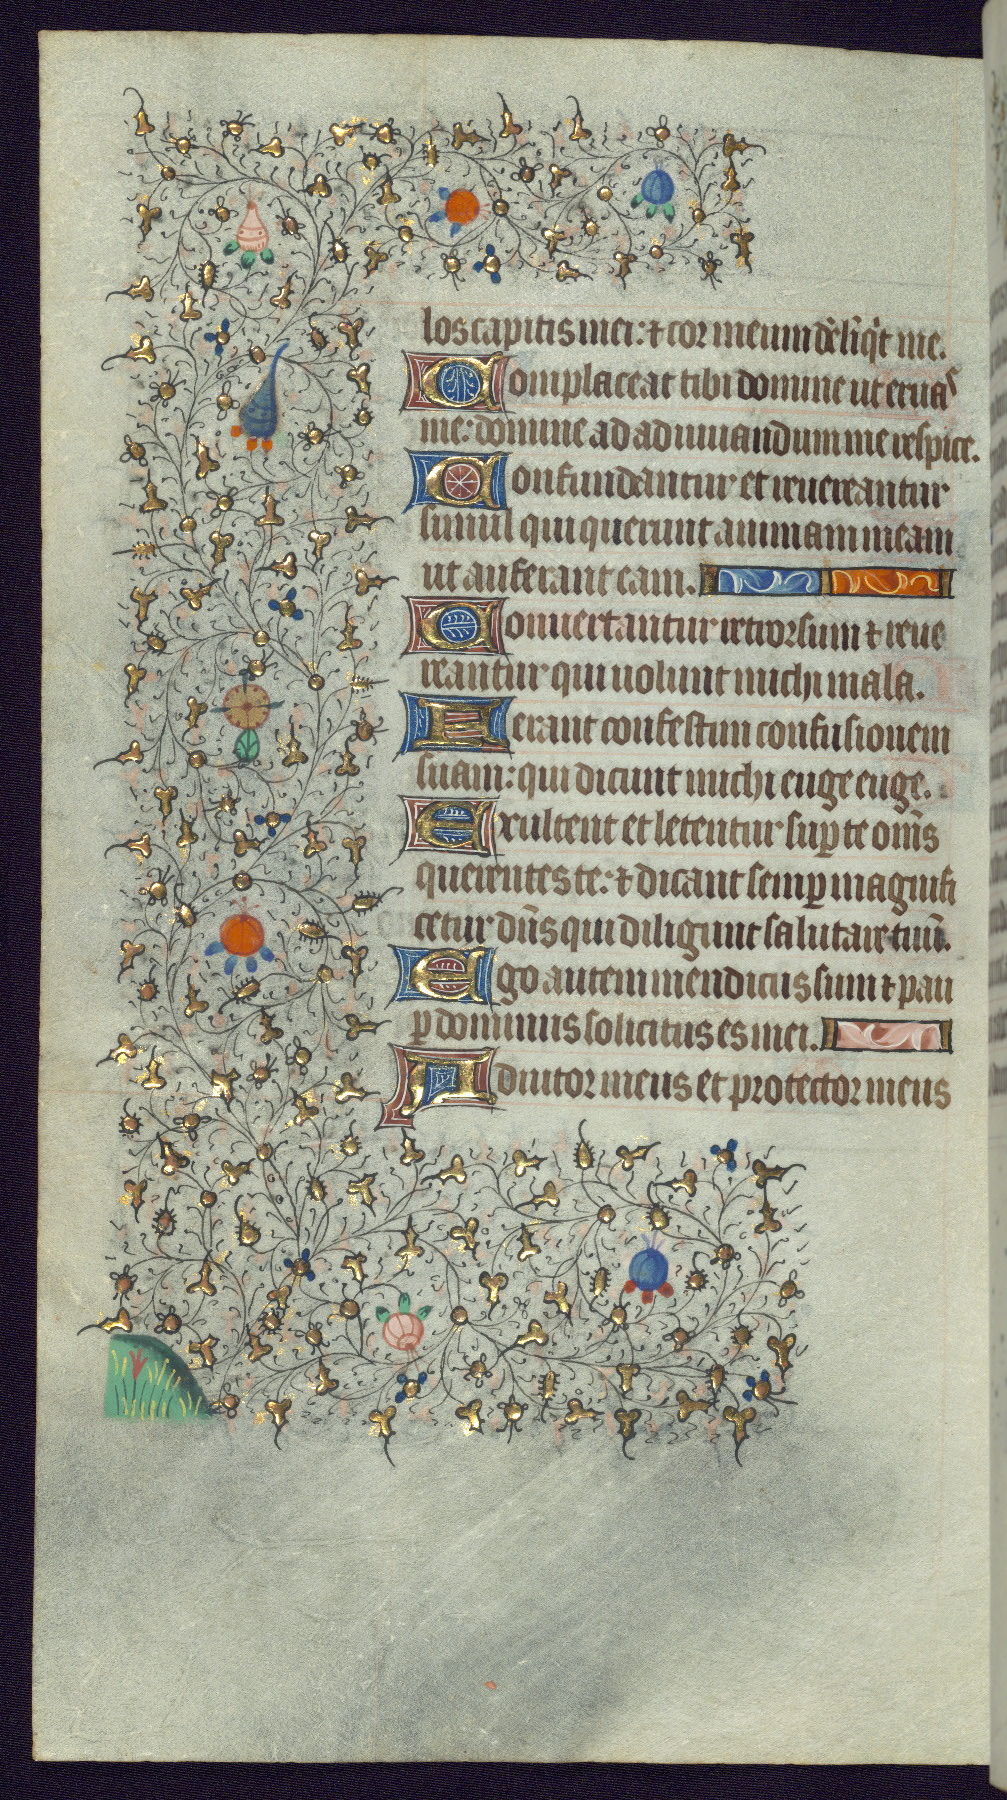 los capitis mei: ⁊ cor meum de̅liq̅t me.
Complaceat tibi domine ut eruas
me: domine ad adiuuandum me respice.
Confundantur et reuereantur
simul qui querunt animam meam
ut auferant eam.
Conuertantur retrorsum ⁊ reue
reantur qui uolunt michi mala.
Ferant confestim confusionem
suam: qui dicunt michi euge euge.
Exultent et letentur sup̲ te om̅s
querentes te: ⁊ dicant semp̲ magnifi
cetur dn̅s qui diligunt salutare tuu̅.
Ego autem mendicus sum ⁊ pau
p̲ dominus solicitus es mei.
Adiutor meus et protector meus